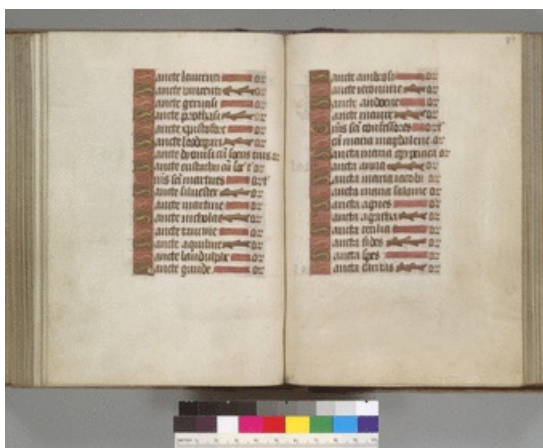 Sancte laurenti or
Sancte vincenti or
Sancte geruasi or
Sancte prothasi or
Sancte xpistofore or
Sancte leodegari or
Sancte dyonisi cū socus tuis or
Sancte eustachi cū soc t or
Oms scī martires or
Sancte siluester or
Sancte martine or
Sancte nicholae or
Sancte taurine or
Sancte aquiline or
Sancte
Sancte
Sancte ambrosi or
Sancte ieronime or
Sancte audoene or
Sancte or
Oms scī confessores or
Scā maria magdalene or
Sancta maria egyptiaca or
Sancta anna or
Sancta maria iacobi or
Sancta maria salome or
Sancta agnes or
Sancta agatha or
Sancta cecilia or
Sancta fides or
Sancta spes or
Sancta caritas or